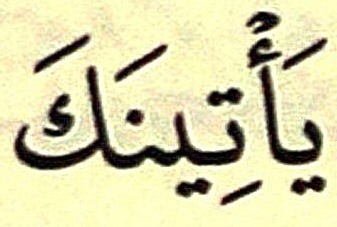 يَأْتِينَكَ